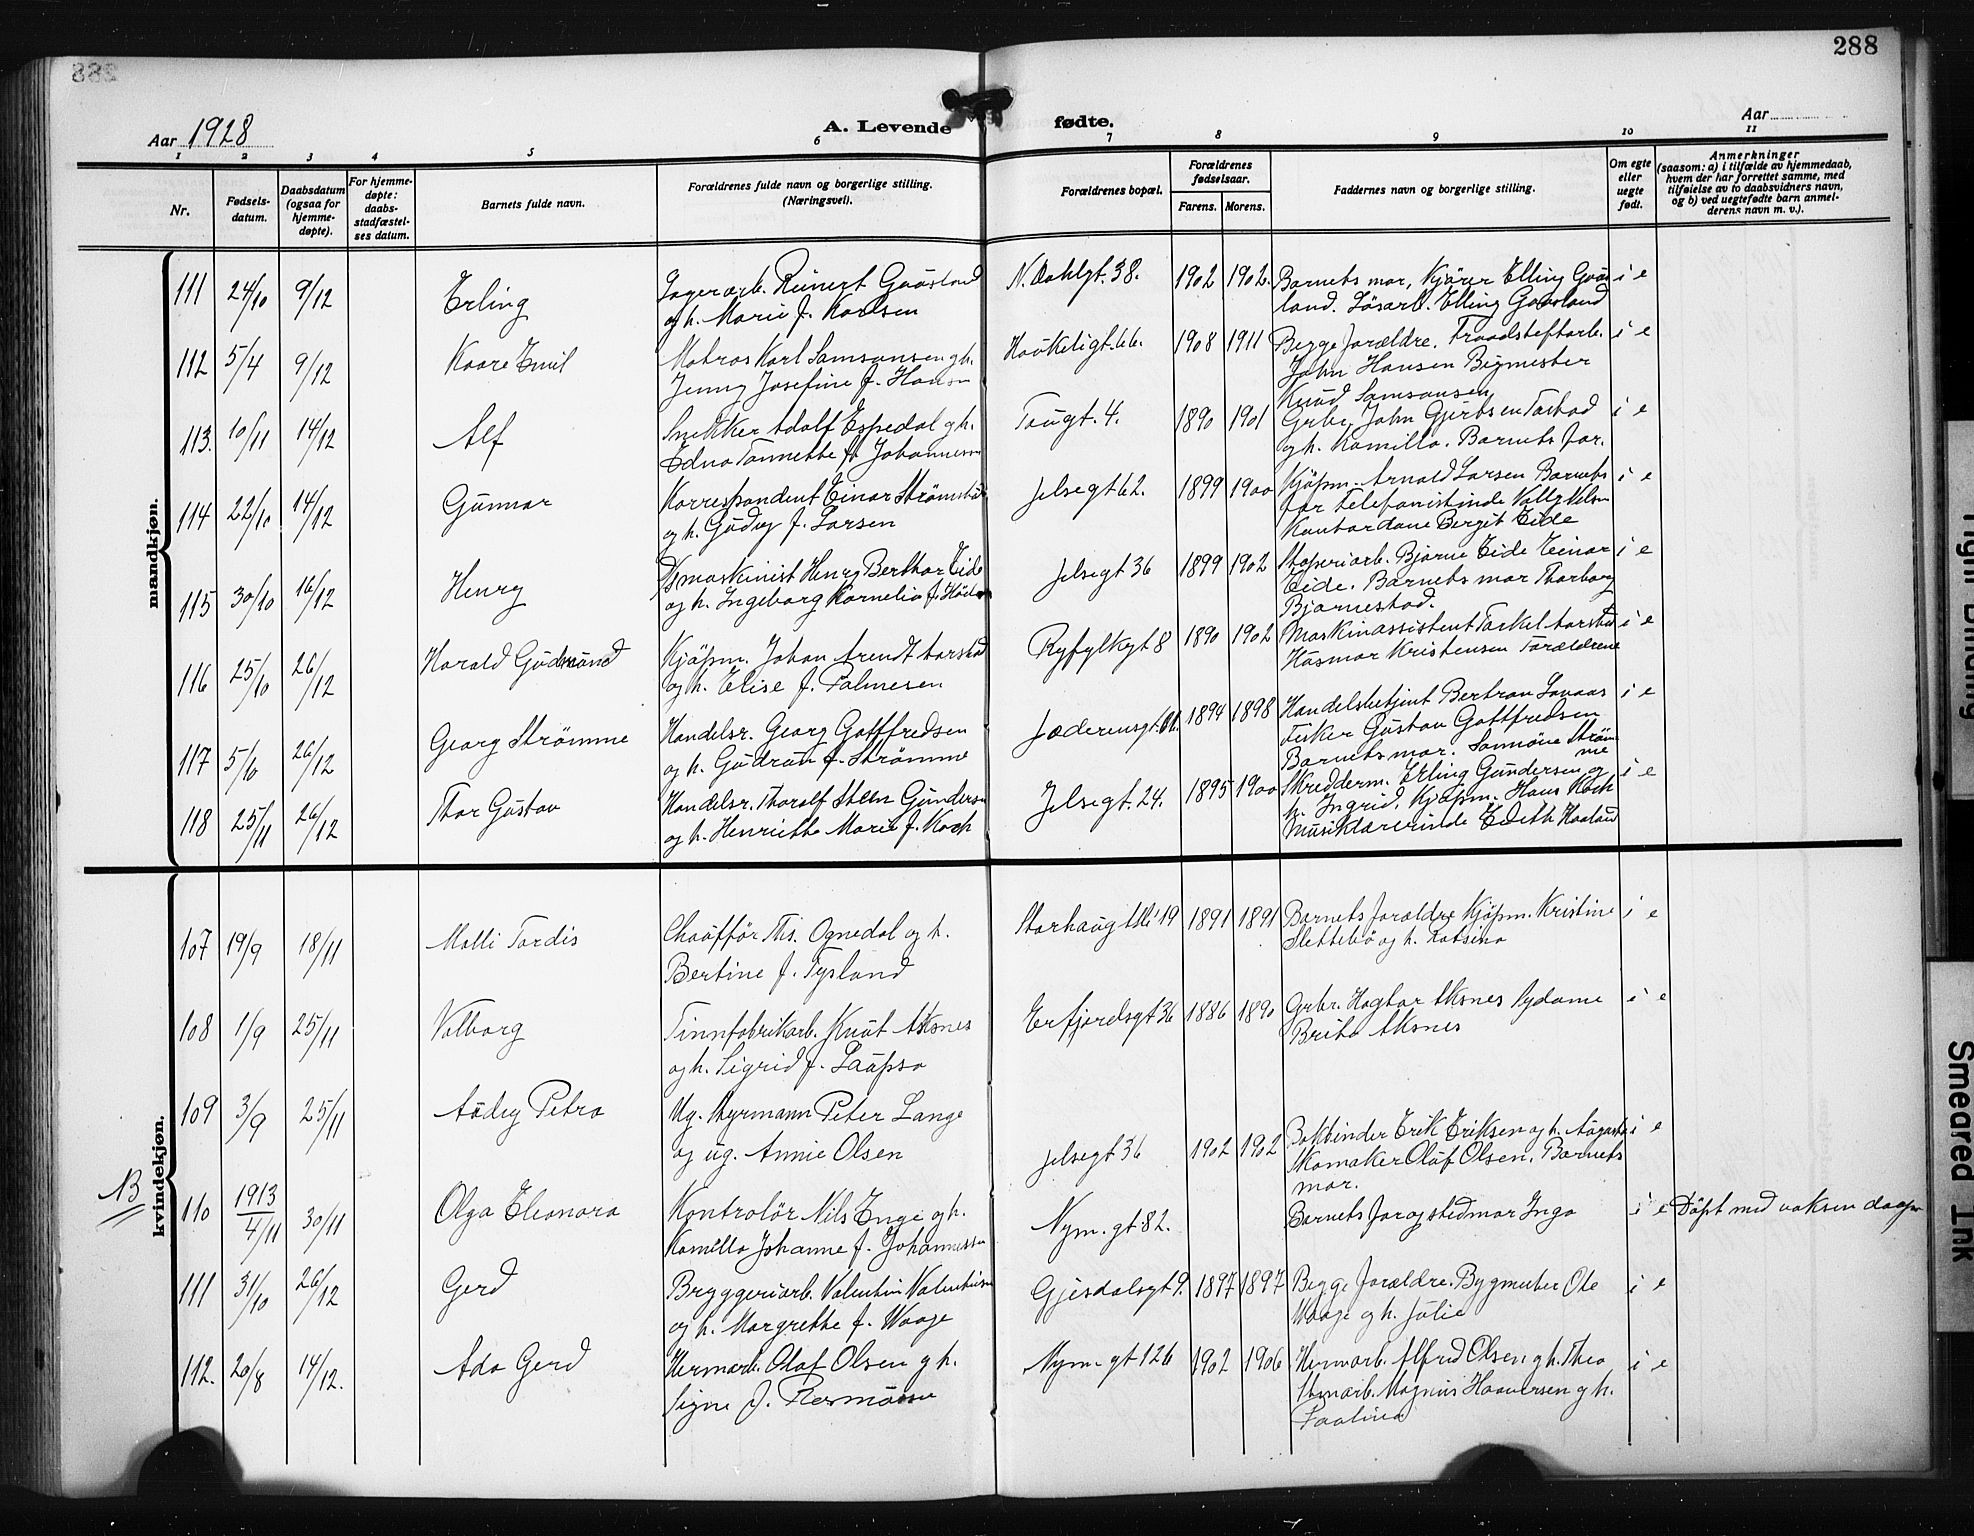 288
Aar 1928
A. Levende fødte.
Aar
1 2 3 4 5 6 7 8 9 10 11
Nr.
Fødsels-
datum.
Daabsdatum
(ogsaa for
hjemme-
døpte).
For hjemme-
døpte:
daabs-
stadfæstel-
ses datum.
Barnets fulde navn.
Forældrenes fulde navn og borgerlige stilling.
(Næringsvei).
Forældrenes bopæl.
Forældrenes
fødselsaar.
Farens. Morens.
Faddernes navn og borgerlige stilling.
Om egte
eller
uegte
født.
Anmerkninger
(saasom: a) i tilfælde av hjemmedaab,
hvem der har forrettet samme, med
tilføielse av to daabsvidners navn,
og b) ved uegtefødte barn anmel-
derens navn m. v.).
mandkjøn.
111 24/10 9/12 Erling
Lagerarb. Reinert Gausland
og h. Marie f. Karlsen
N. Dahlgt. 38. 1902 1902.
Barnets mor, Kjører Elling Gaus
land. Løsarb. Elling Gausland
i e
112 5/4 9/12 Kaare Emil
Matros Karl Samsonsen og h.
Jenny Josefine f. Hansen
Haukeligt. 66. 1908 1911
Begge forældre.
John Hansen Bygmester
Knud Samsonsen
i e
113. 10/11 14/12 Alf
Snekker Adolf Espedal og h.
Edna Tonnette f. Johannessen
Taugt. 4. 1890 1901
Grbr. John Tastad
og h. Kamilla. Barnets far.
i e
114 22/10 14/12 Gunnar
Korrespondent Einar Strømstad
og h. Gudny f. Larsen
Jelsegt 62. 1899 1900
Kjøpm. Arnold Larsen Barnets
far Telefonistinde Valli
Kontordame Bergit Eide
i e
115 30/10 16/12 Henry
maskinist Henry Berthar Eide
og h. Ingeborg Kornelia f.
Jelsegt 36 1899 1902
Bjarne Eide Einar
Eide. Barnets mor Thorborg
Bjarnestad.
i e
116 25/10 26/12 Harald Gudmund
Kjøpm. Johan Arendt Aarstad
og h. Elise f. Salmesen
Ryfylkegt 8 1890 1902
Maskinassistent Torkel Aarstad
Husmor Kristensen Forældrene
i e
117 5/6 26/12 Georg Strømme
Handelsr. Georg Gottfredsen
og h. Gudrun f. Strømme
Jæderensgt. 1894 1898
Handelsbetjent Bertran Lovaas
Fisker Gustav Gottfredsen
Barnets mor. Sannøne Strøm
me
i e
118 25/11 26/12 Thor Gustav
Handelsr. Thoralf Steen Gundersen
og h. Henriette Marie f. Koch
Jelsegt. 24. 1895 1900
Skredderm. Erling Gundersen og
h. Ingrid. Kjøpm. Hans Koch
Musiklærerinde Edith Haaland
i e
kvindekjøn.
107 19/9 18/11 Malli Tordis
Chauffør Ths. Ognedal og h.
Bertine f. Tysland
Storhaug 19 1891 1891
Barnets forældre Kjøpm. Kristine
Slettebø og h.
i e
108 1/9 25/11 Valborg
Tinnfabrikarb. Knut Aksnes
og h. Sigrid f. Laupsa
Erfjordsgt 36 1886 1890
Grbr. Hagbar Aksnes Sydame
Brita Aksnes
i e
109 3/9 25/11 Audey Petra
Ug. Styrmann Peter Lange
og ug. Annie Olsen
Jelsegt 36 1902 1902
Bokbinder Erik Eriksen og h. Augusta
Skomaker Oluf Olsen. Barnets
mor.
i e
NB
110 1913
4/11 30/11 Olga Eleonora
Kontrolør Nils Enge og h.
Kamilla Johanne f. Johannessen
Nym. gt 82.
Barnets far og stedmor Inga
i e Døpt med voksen daap
111 31/10 26/12 Gerd
Bryggeriarb. Valentin Valentinsen
og h. Margrethe f. Waage
Gjesdalsgt 9. 1897 1897
Begge forældre. Bygmester Ole
Waage og h. Julie
i e
112. 20/8 14/12. Ada Gerd
Hermarb. Olaf Olsen og h.
Signe f. Rasmussen
Nym. gt 126 1902 1906
Hermarb. Alfred Olsen og h. Thea
Magnus og h.
Paulina
i e
Tight Binding
Smeared Ink